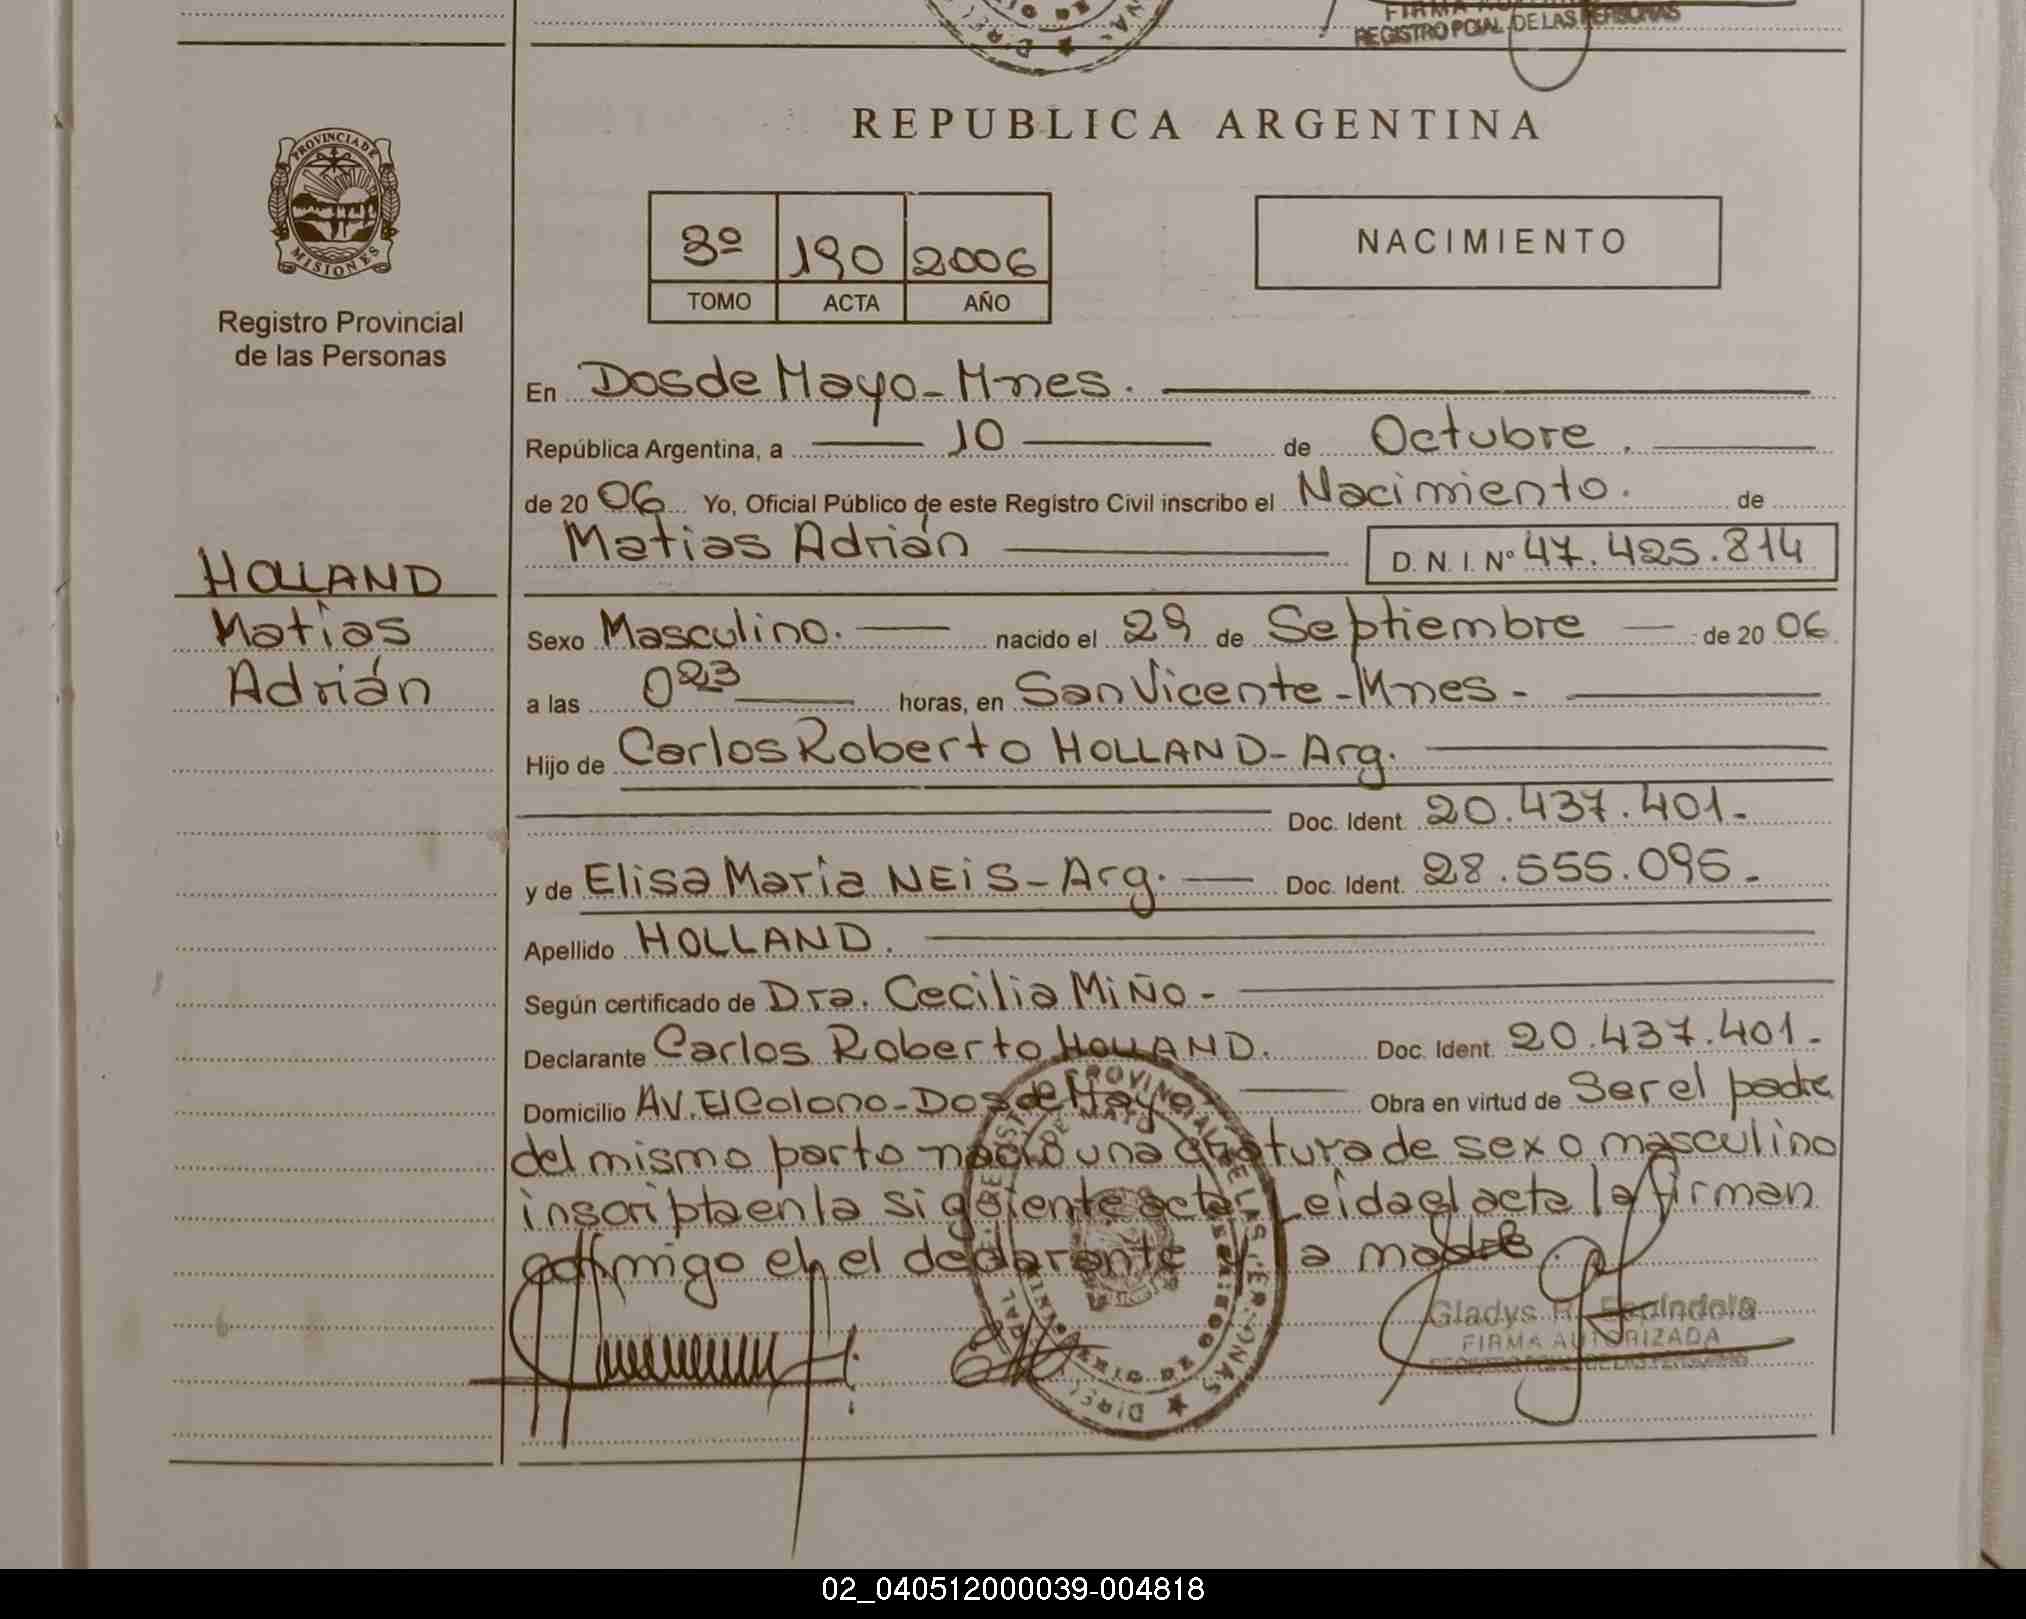 FIRMA
REGISTRO PCIAL. DE LAS PERSONAS
PROVINCIA DE
MISIONES
Registro Provincial
de las Personas
REPUBLICA ARGENTINA
3º 190 2006
TOMO ACTA AÑO
NACIMIENTO
En Dos de Mayo - Mnes.
República Argentina, a 10 de Octubre.
de 20 06 Yo, Oficial Público de este Registro Civil inscribo el Nacimiento. de
Matias Adrián D. N. I. Nº 47.425.814
HOLLAND
Matías
Adrián
Sexo Masculino. nacido el 29 de Septiembre de 20 06
a las 0 23 horas, en San Vicente - Mnes -
Hijo de Carlos Roberto HOLLAND - Arg.
Doc. Ident. 20.437.401.-
y de Elisa María NEiS - Arg. Doc. Ident. 28.555.095.-
Apellido HOLLAND.
Según certificado de Dra. Cecilia Miño -
Declarante Carlos Roberto HOLLAND. Doc. Ident. 20.437.401.-
Domicilio AV. El Colono - Dos de Mayo Obra en virtud de Ser el padre
del mismo parto nació una criatura de sexo masculino
inscripta en la siguiente acta. Leída el acta la firman
conmigo el declarante y la madre.
Gladys R. Espíndola
FIRMA AUTORIZADA
02_040512000039-004818